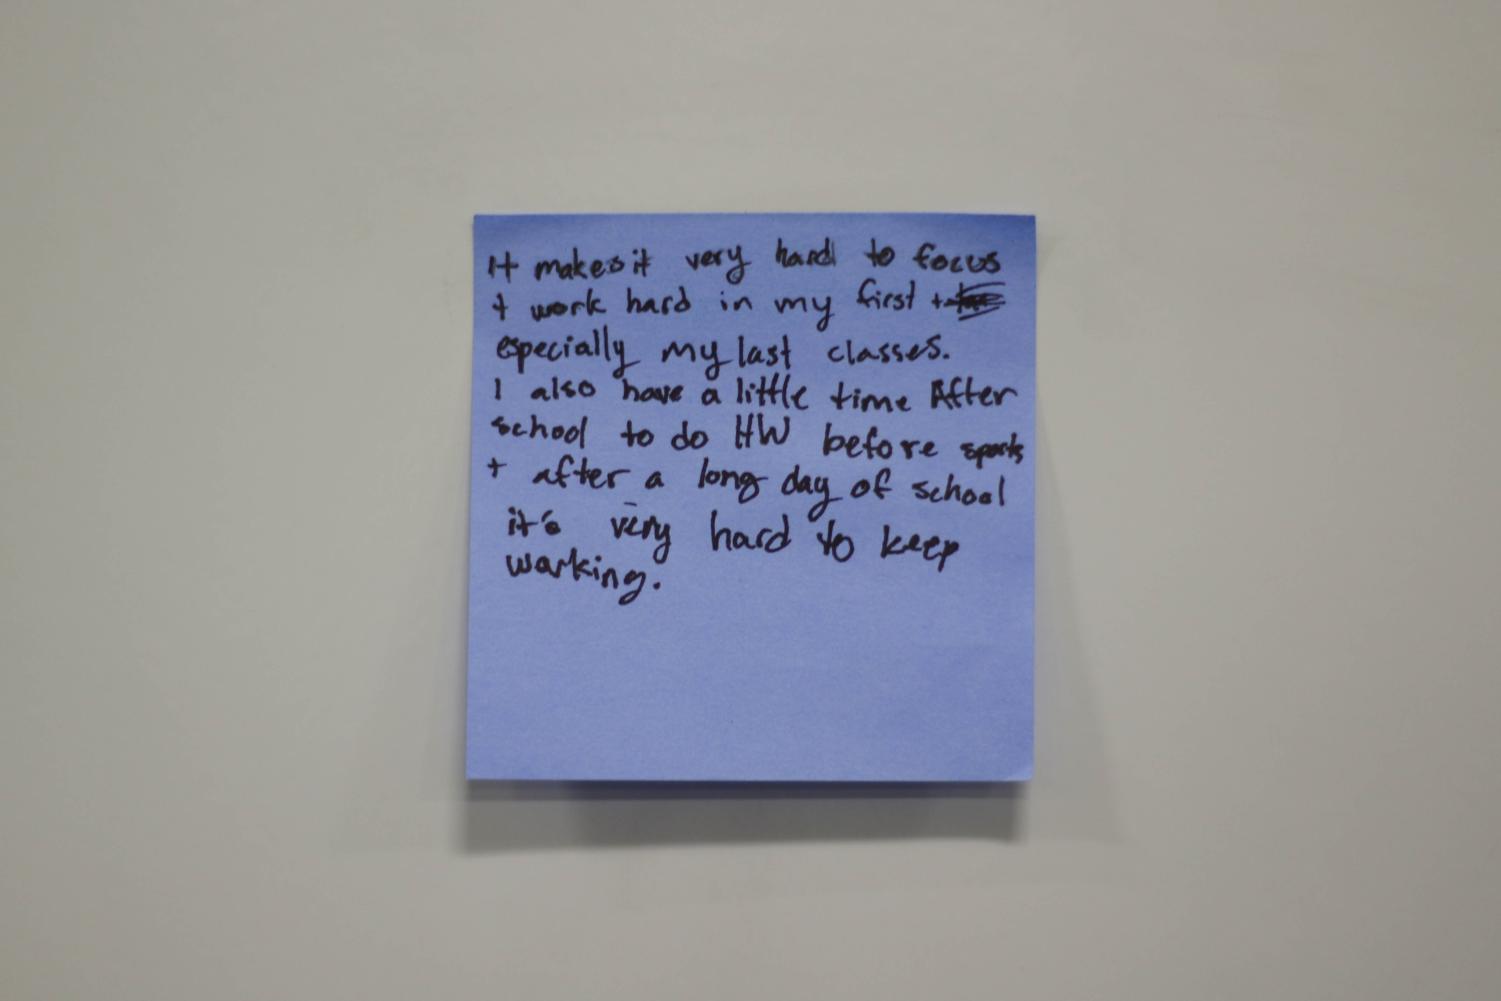 It makes it very hard to focus
+ work hard in my first +
especially my last classes.
I also have a little time After
school to do HW before sports
+ after a long day of school
it's very hard to keep
working.